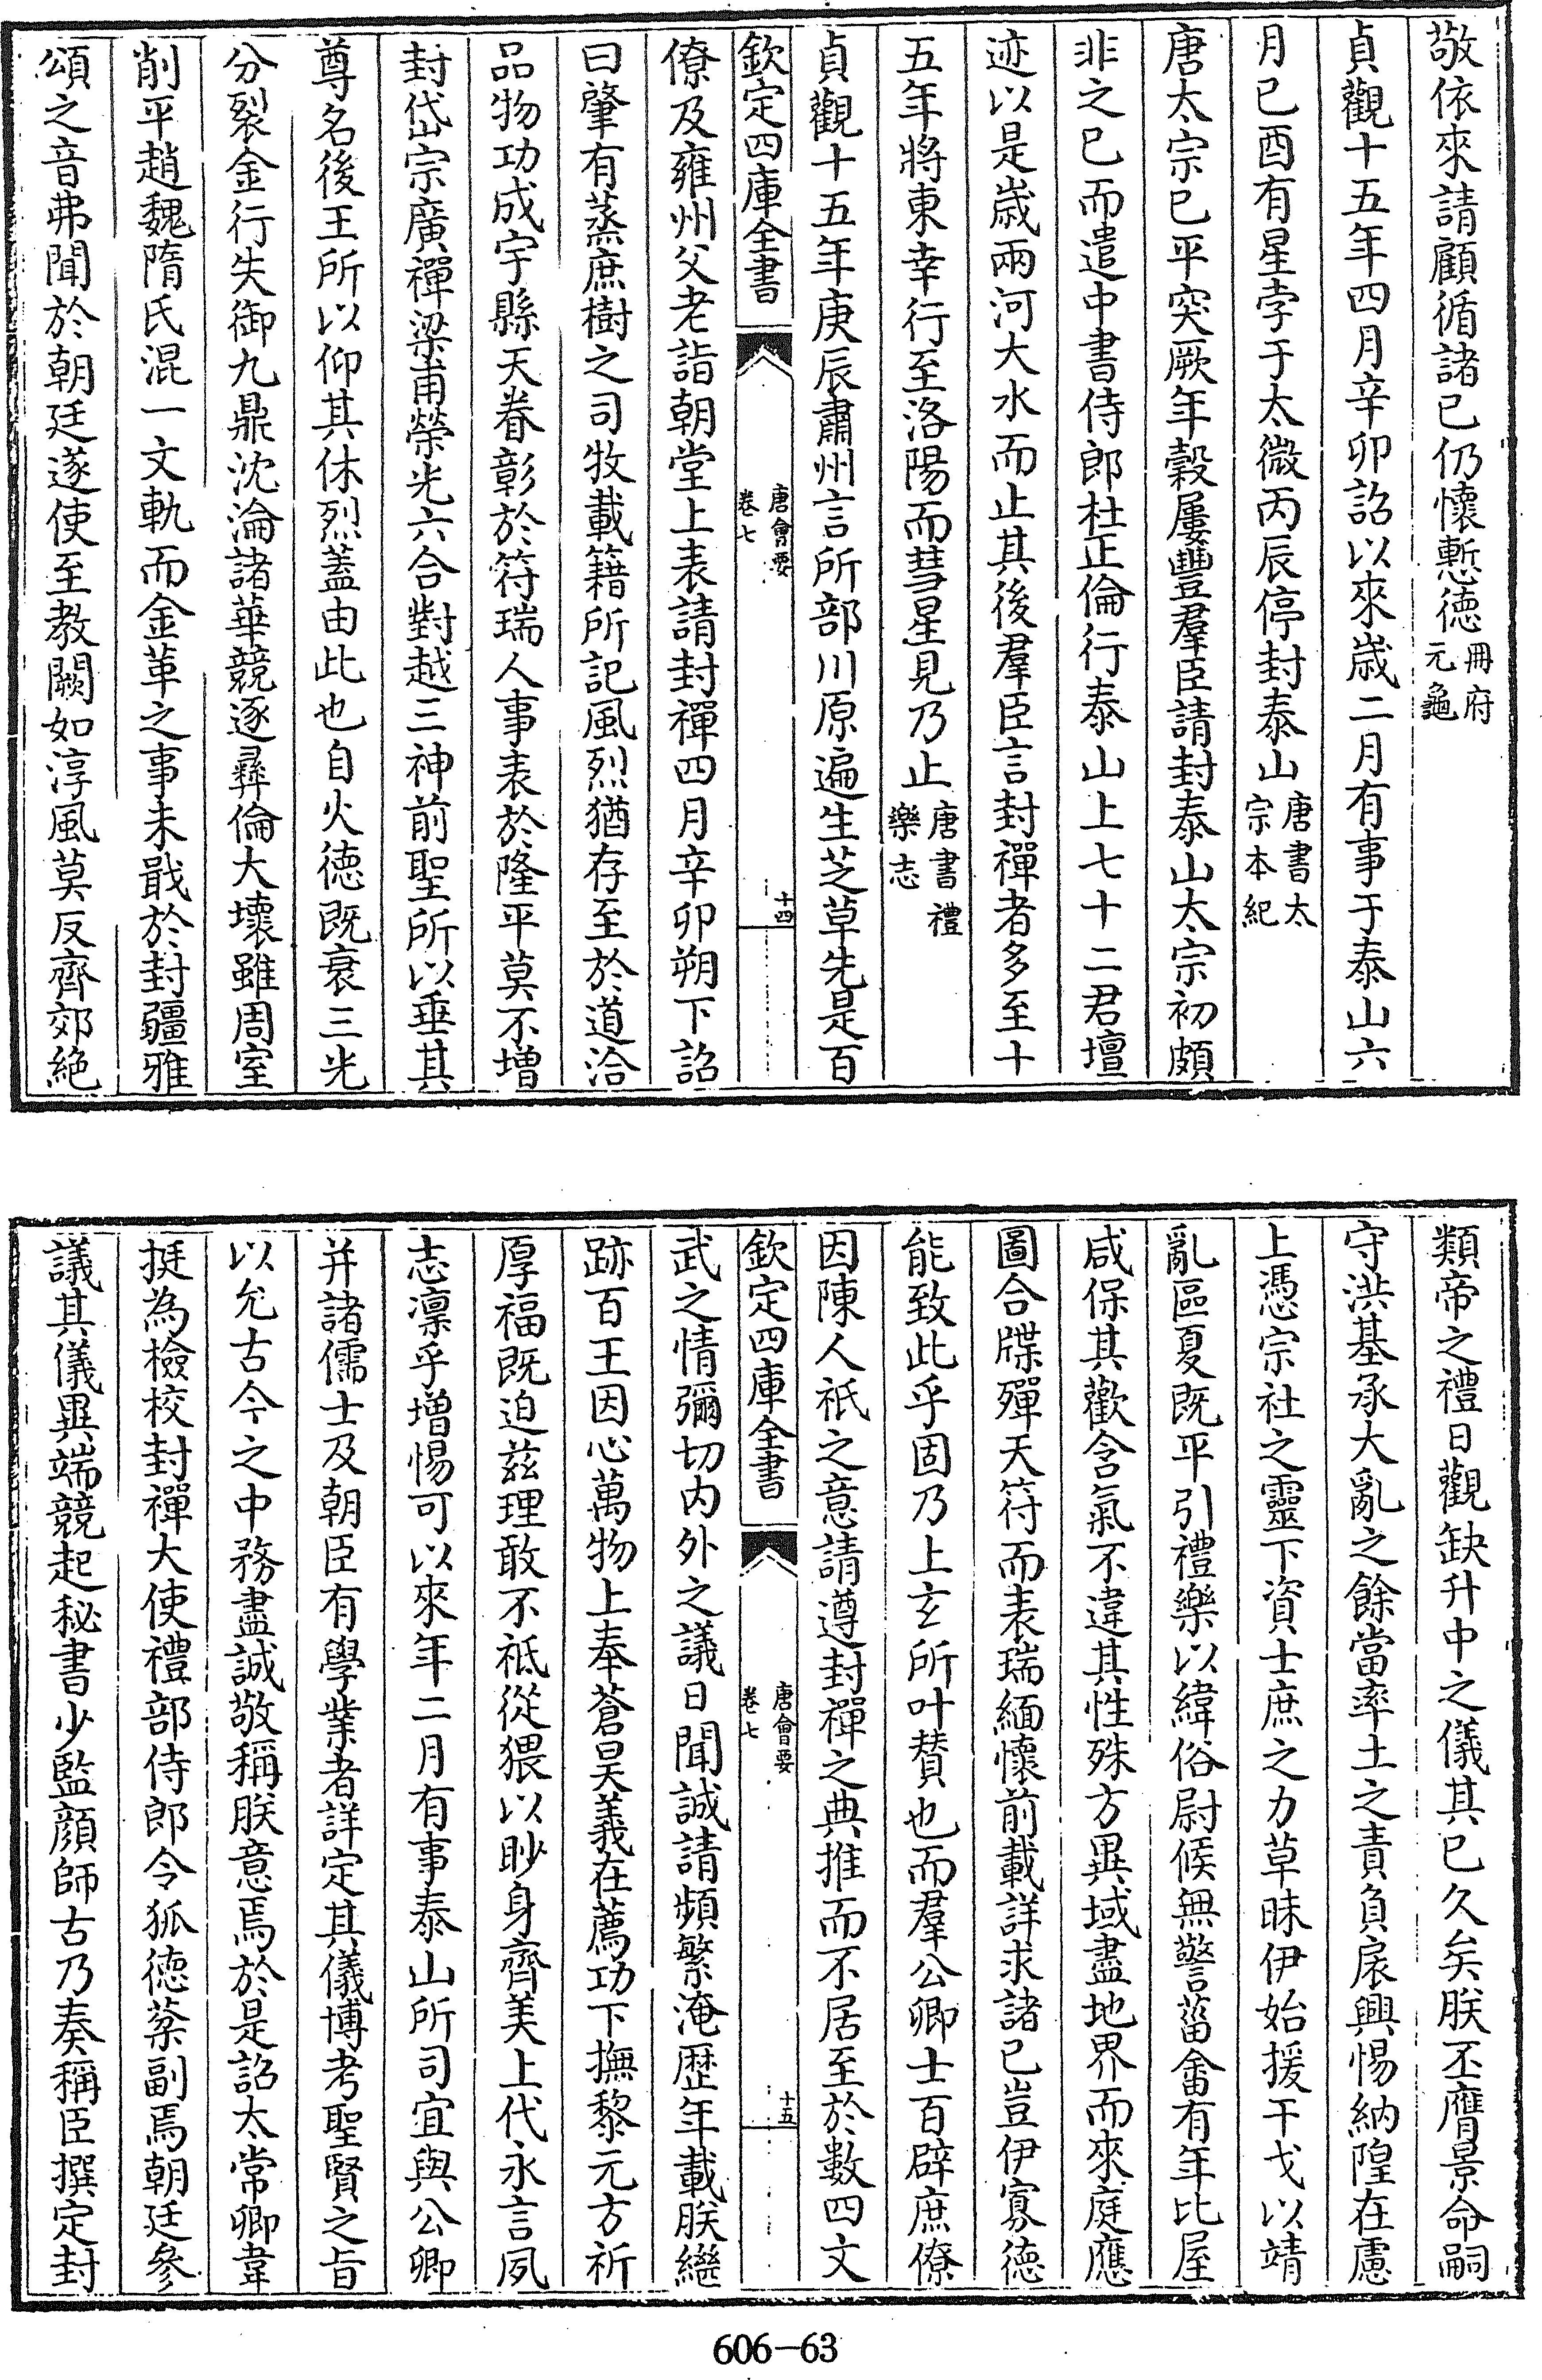 敬依來請顧循諸己仍懷慙徳冊府元龜
貞觀十五年四月辛卯詔以來歳二月有事于泰山六
月已酉有星孛于太微丙辰停封泰山唐書太宗本紀
唐太宗已平突厥年榖屢豐羣臣請封泰山太宗初頗
非之已而遣中書侍郎杜正倫行泰山上七十二君壇
迹以是歳兩河大水而止其後羣臣言封禪者多至十
五年將東幸行至洛陽而彗星見乃止唐書禮樂志
貞觀十五年庚辰肅州言所部川原遍生芝草先是百
欽定四庫全書
唐會要
卷七
十四
僚及雍州父老詣朝堂上表請封禪四月辛卯朔下詔
曰肇有蒸庶樹之司牧載籍所記風烈猶存至於道洽
品物功成宇縣天眷彰於符瑞人事表於隆平莫不增
封岱宗廣禪梁甫榮光六合對越三神前聖所以垂其
尊名後王所以仰其休烈蓋由此也自火徳既衰三光
分裂金行失御九鼎沈淪諸華競逐彛倫大壞雖周室
削平趙魏隋氏混一文軌而金革之事未戢於封疆雅
頌之音弗聞於朝廷遂使至教闕如淳風莫反齊郊絶
類帝之禮日觀缺升中之儀其已久矣朕丕膺景命嗣
守洪基承大亂之餘當率土之責負扆興惕納隍在慮
上憑宗社之靈下資士庶之力草昧伊始援干戈以靖
亂區夏既平引禮樂以緯俗尉候無警菑畬有年比屋
咸保其歡含氣不違其性殊方異域盡地界而來庭應
圖合牒殫天符而表瑞緬懷前載詳求諸已豈伊寡徳
能致此乎固乃上玄所叶賛也而羣公卿士百辟庶僚
因陳人祇之意請遵封禪之典推而不居至於數四文
欽定四庫全書
唐會要
卷七
十五
武之情彌切内外之議日聞誠請頻繁淹歴年載朕繼
跡百王因心萬物上奉蒼昊義在薦功下撫黎元方祈
厚福既迫兹理敢不祗從猥以眇身齊美上代永言夙
志凛乎增惕可以來年二月有事泰山所司宜與公卿
并諸儒士及朝臣有學業者詳定其儀博考聖賢之旨
以允古今之中務盡誠敬稱朕意焉於是詔太常卿韋
挺為檢校封禪大使禮部侍郎令狐徳棻副焉朝廷參
議其儀異端競起秘書少監顔師古乃奏稱臣撰定封
606-63